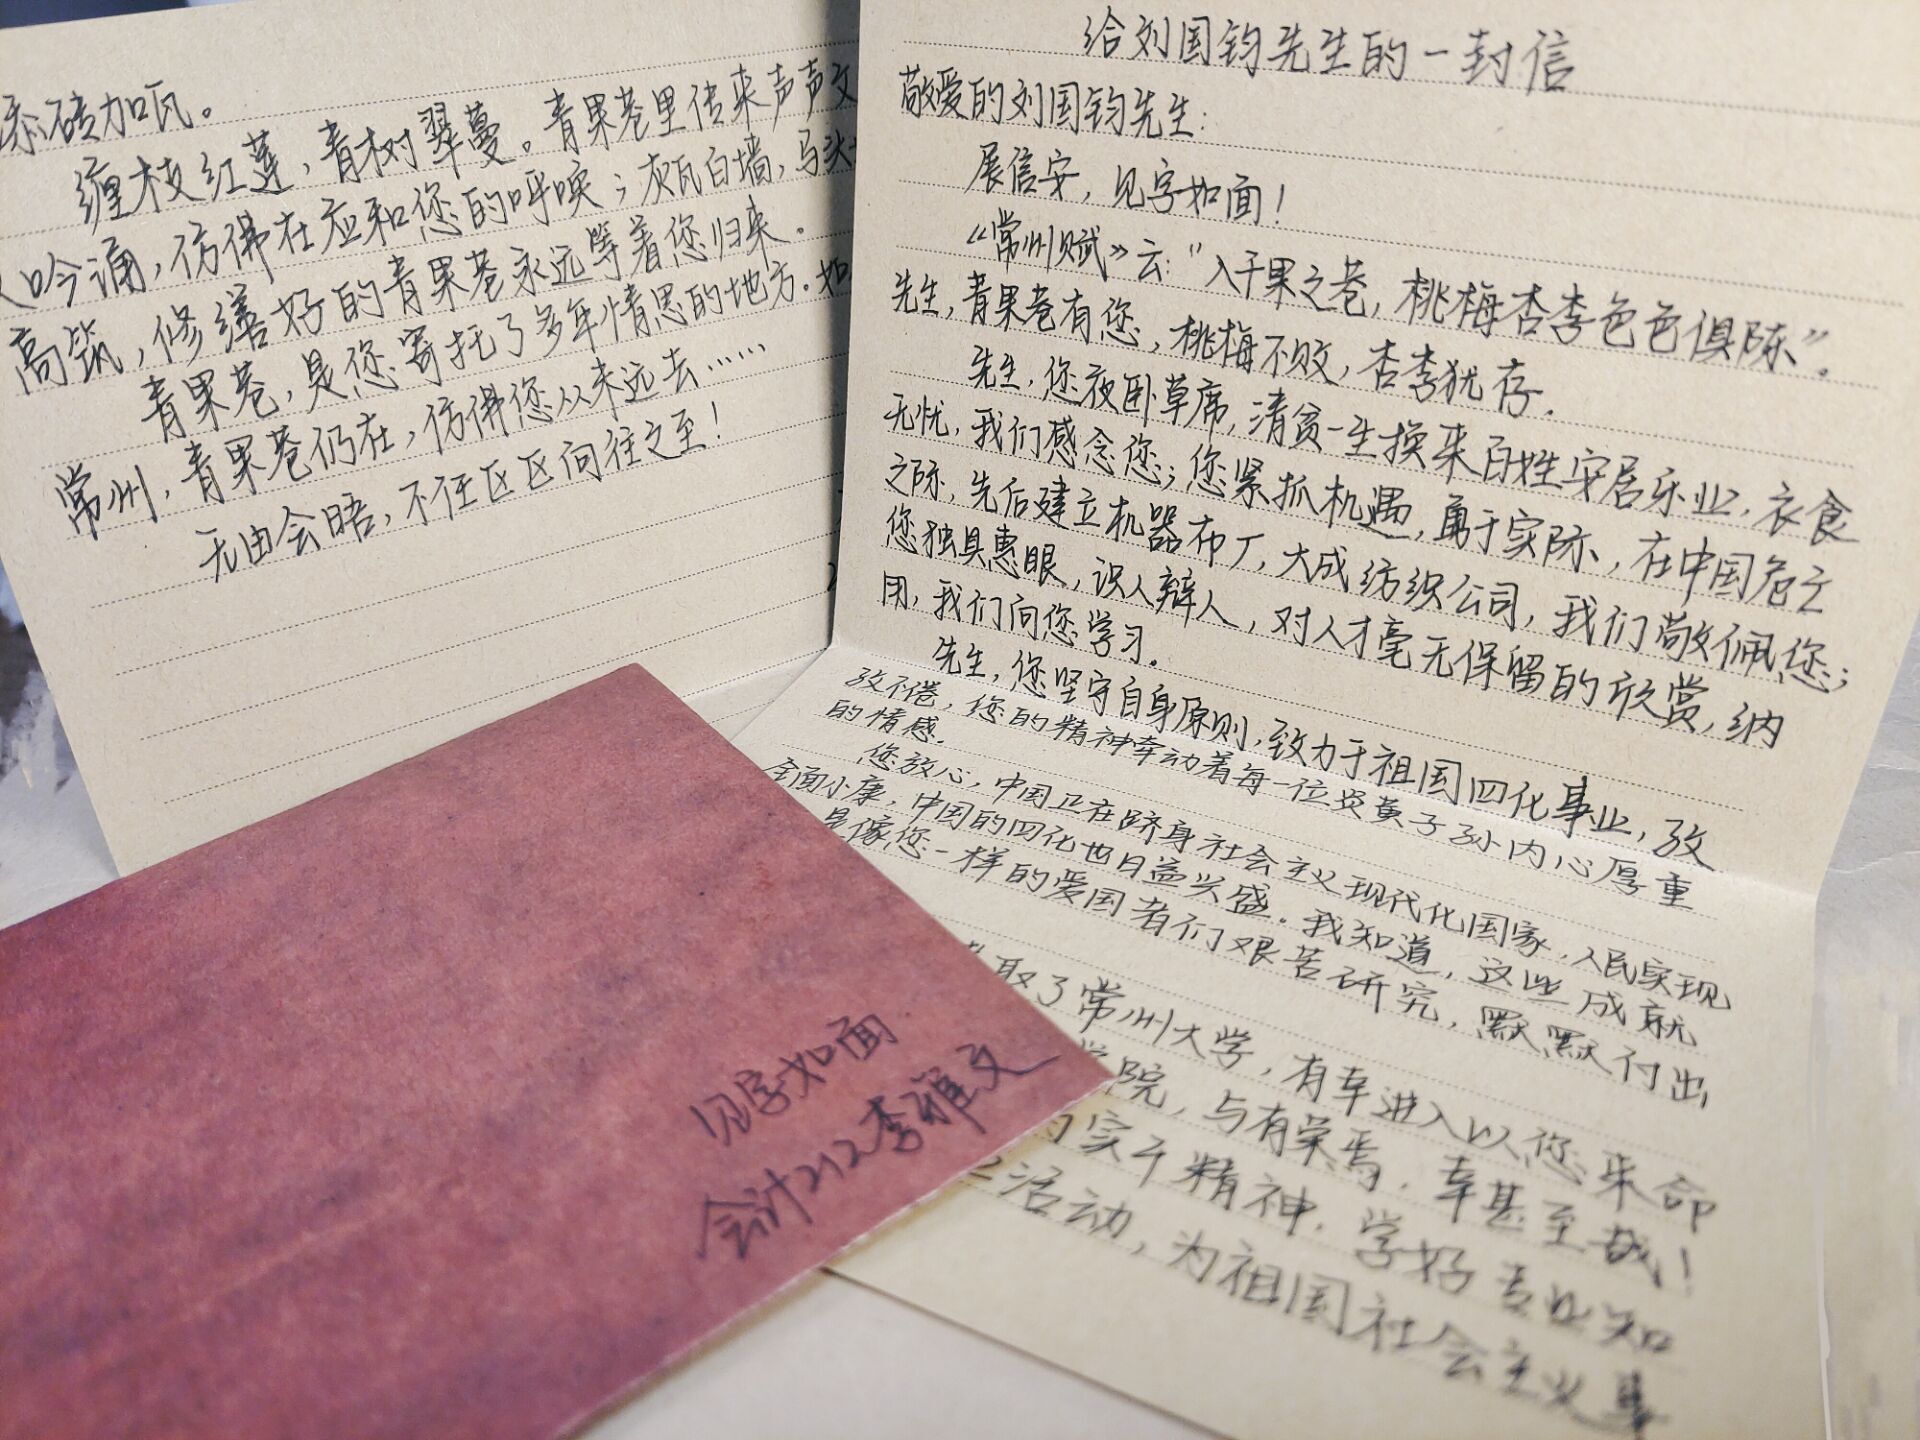 给刘国钧先生的一封信
敬爱的刘国钧先生:
展信安,见字如面!
《常州赋》云:"入千果之巷,桃梅杏李色色俱陈"。
先生,青果巷有您,桃梅不败,杏李犹存.
先生,您夜卧草席,清贫一生换来百姓安居乐业,衣食
无忧,我们感念您;您紧抓机遇,勇于实际,在中国危亡
之际,先后建立机器布厂,大成纺织公司,我们敬佩您;
您独具惠眼,识人辩人,对人才毫无保留的欣赏,纳
团,我们向您学习.
先生,您坚守自身原则,致力于祖国四化事业,孜
孜不倦,您的精神牵动着每一位炎黄子孙内心厚重
的情感.
您放心,中国正在跻身社会主义现代化国家,人民实现
全面小康,中国的四化也日益兴盛.我知道,这些成就
是像您一样的爱国者们艰苦研究,默默付出
取了常州大学,有幸进入以您来命
学院,与有荣焉,幸甚至哉!
实干精神.学好专业知
活动,为祖国社会主义事
添砖加瓦。
缠枝红莲,青树翠蔓。青果巷里传来声声文
人吟诵,仿佛在应和您的呼唤;灰瓦白墙,马头
高筑,修缮好的青果巷永远等着您归来.
青果巷,是您寄托了多年情思的地方.如
常州,青果巷仍在,仿佛您从未远去……
无由会晤,不任区区向往之至!
见字如面
会计212李雅文